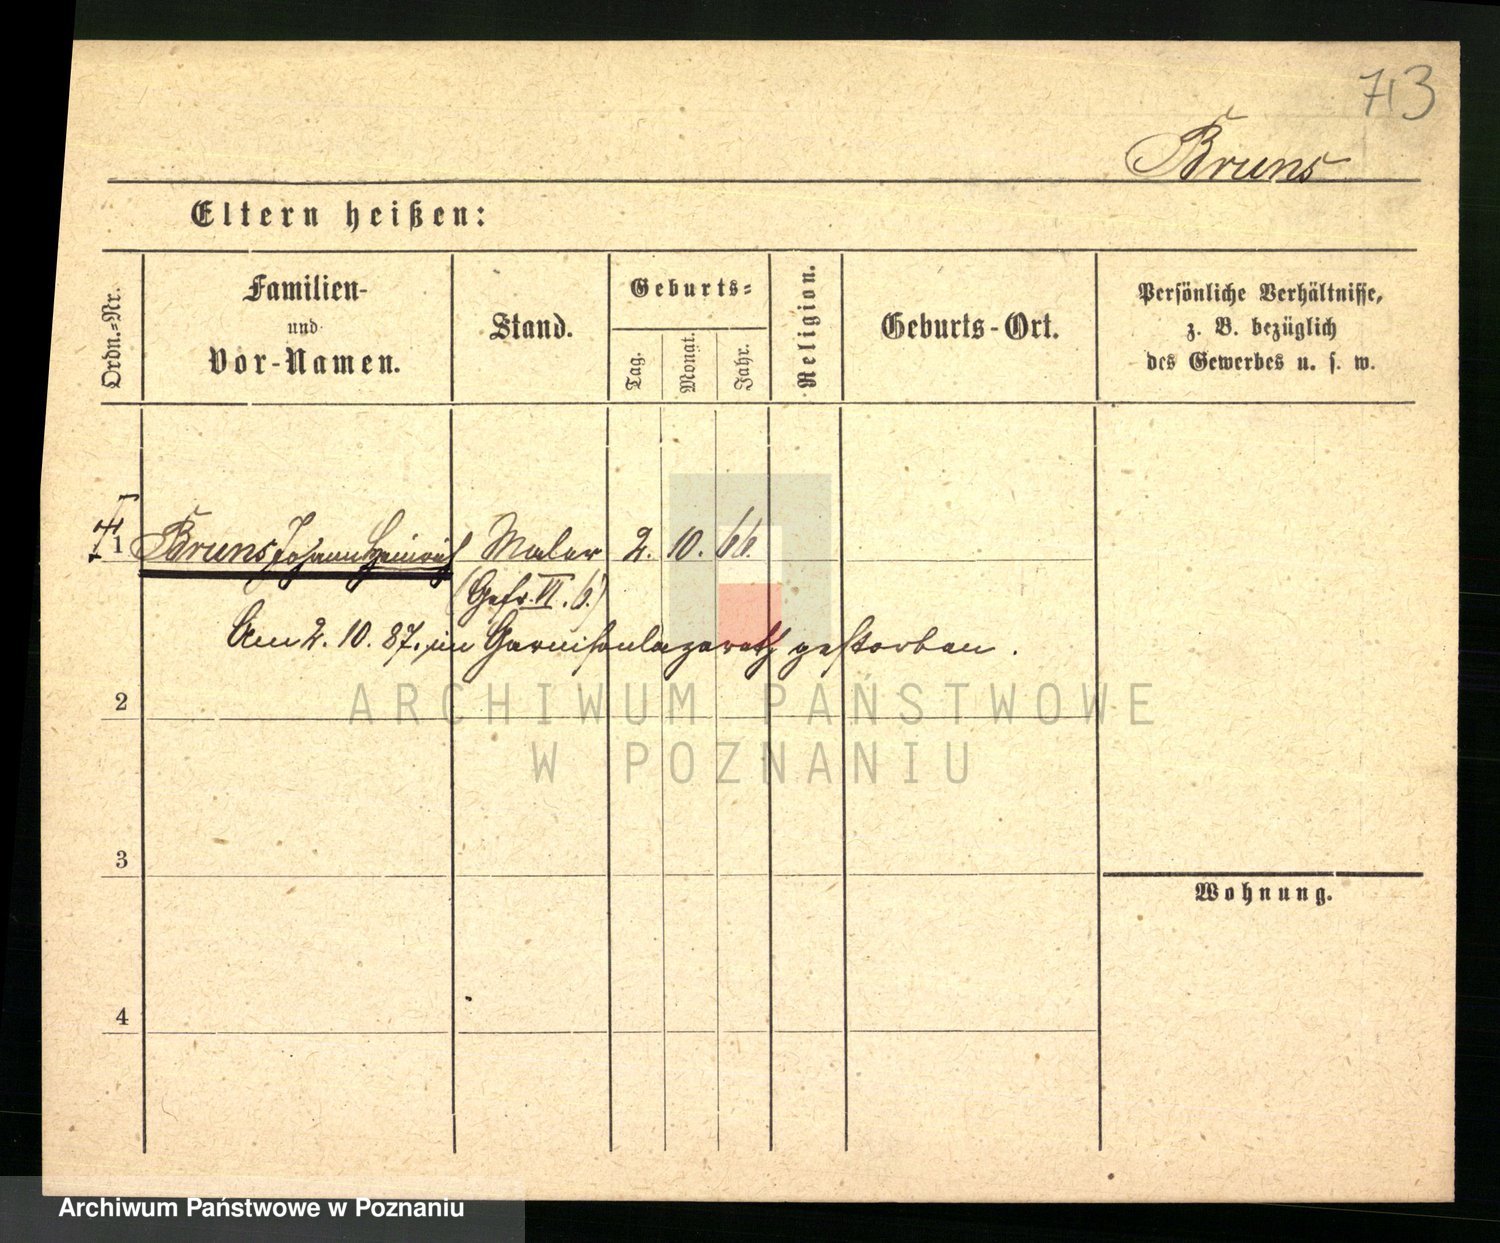 713
Bruns
Eltern heißen:
Ordn.-Nr.
Familien-
und
Vor-Namen.
Stand.
Geburts-
Tag.
Monat.
Jahr.
Religion.
Geburts-Ort.
Persönliche Verhältnisse,
z. B. bezüglich
des Gewerbes u. s. w.
1 Bruns Johann Heinrich Maler 2. 10. 66.
(Gefr. VI. 6.)
Am 2. 10. 87. im Garnisonlazareth gestorben.
2
3
4
Wohnung.
ARCHIWUM PAŃSTWOWE
W POZNANIU
Archiwum Państwowe w Poznaniu